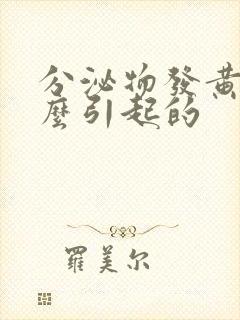 分泌物發黃
麼引起的
羅美尔